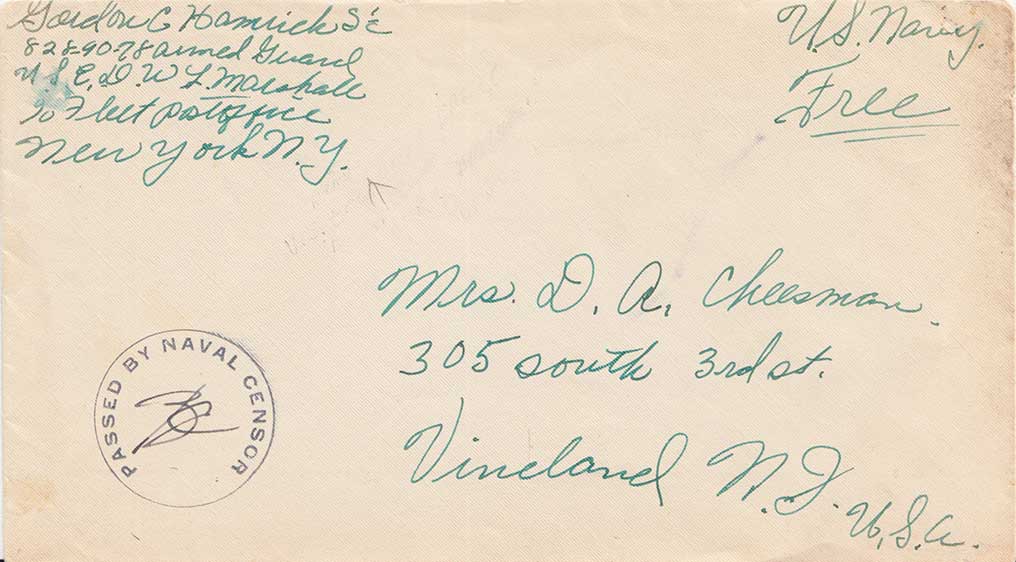 Gordon C Hamrick S1c
828-90-78 armed Guard
Marshall
Fleet postoffice
New York N.Y.
U.S. Navy.
Free
Mrs. D. A. Cheesman.
305 south 3rd st.
Vineland N.J.
U.S.A.
PASSED BY NAVAL CENSOR